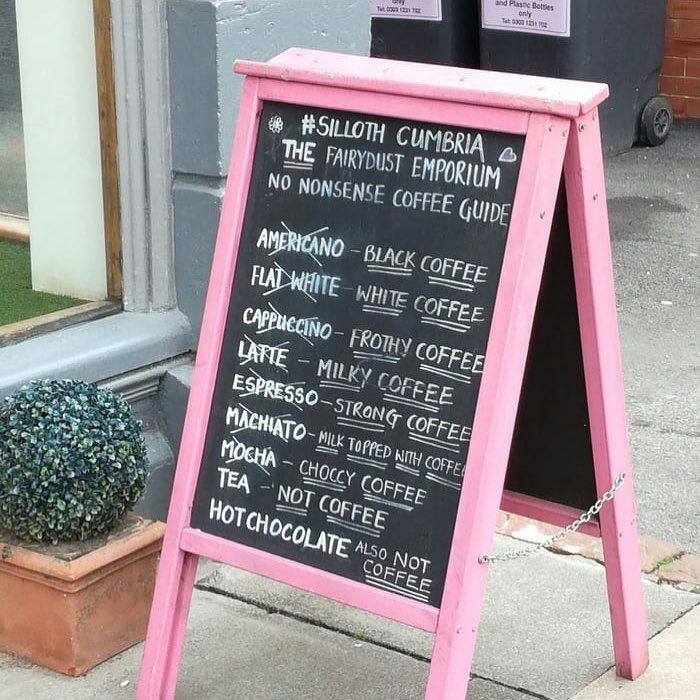 only
Tel: 0303 1231 702
and Plastic Bottles
only
Tel: 0303 1231 702
#SILLOTH CUMBRIA
THE FAIRYDUST EMPORIUM
NO NONSENSE COFFEE GUIDE
AMERICANO - BLACK COFFEE
FLAT WHITE - WHITE COFFEE
CAPPUCCINO - FROTHY COFFEE
LATTE - MILKY COFFEE
ESPRESSO - STRONG COFFEE
MACHIATO - MILK TOPPED WITH COFFEE
MOCHA - CHOCCY COFFEE
TEA - NOT COFFEE
HOT CHOCOLATE ALSO NOT
COFFEE